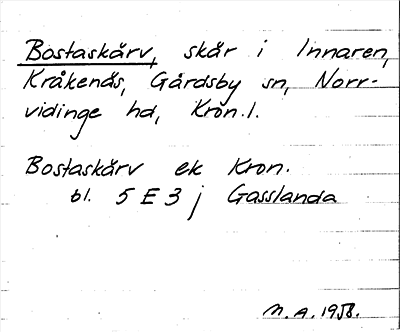 Bostaskärv, skär i Innaren,
Kråkenäs, Gårdsby sn, Norr-
vidinge hd, Kron. l.
Bostaskärv ek Kron.
bl. 5 E 3 j Gasslanda
M. A. 1958.